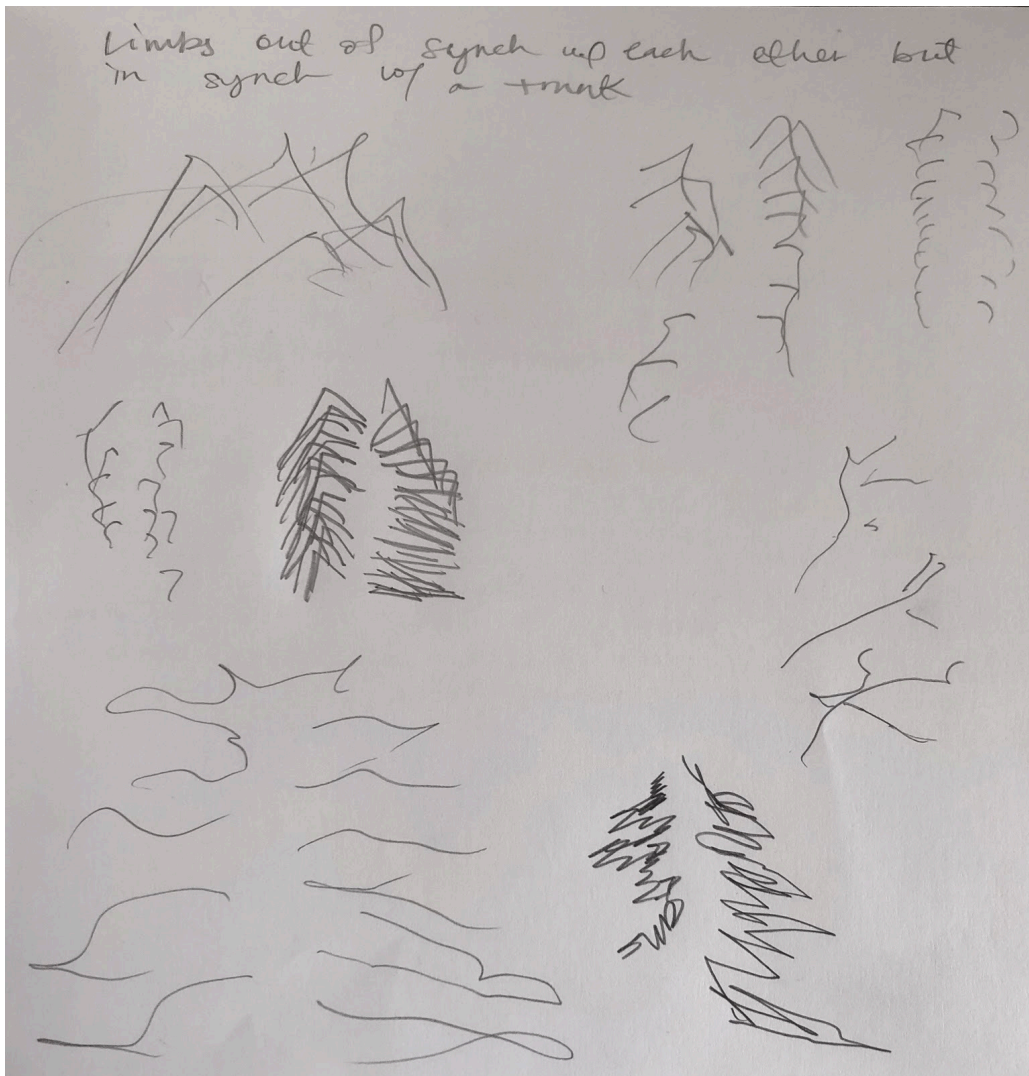 Limbs out of synch w/ each other but
in synch w/ a trunk